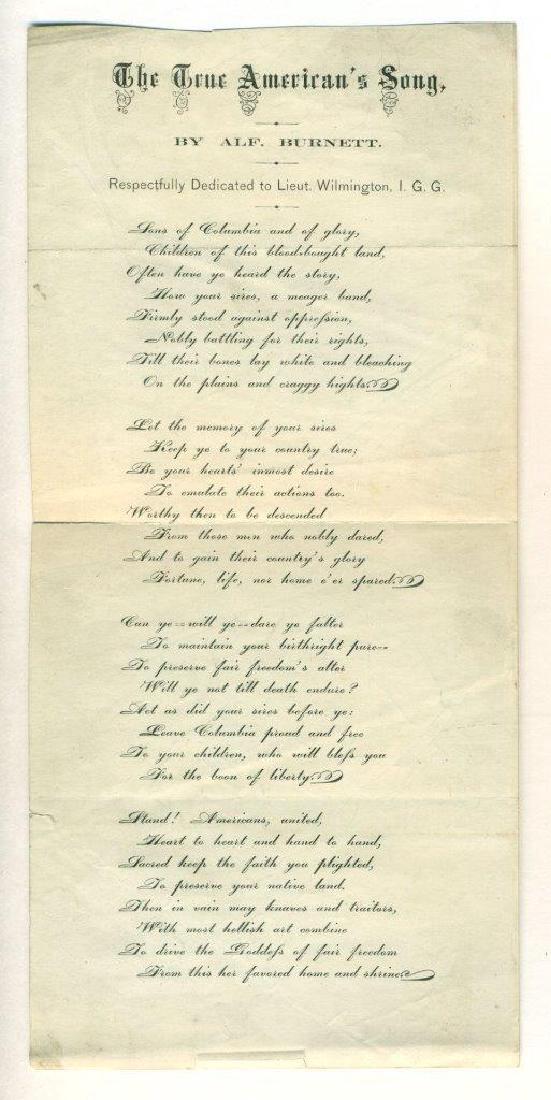 The True American's Song,
BY ALF. BURNETT.
Respectfully Dedicated to Lieut. Wilmington, I. G. G.
Sons of Columbia and of glory,
Children of this bloodbought land,
Often have ye heard the story,
How your sires, a meager band,
Firmly stood against oppression,
Nobly battling for their rights,
Till their bones lay white and bleaching
On the plains and craggy hights.
Let the memory of your sires
Keep ye to your country true;
Be your hearts' inmost desire
To emulate their actions too.
Worthy then to be descended
From those men who nobly dared,
And to gain their country's glory
Fortune, life, nor home e'er spared.
Can ye--will ye--dare ye falter
To maintain your birthright pure--
To preserve fair freedom's alter
Will ye not till death endure?
Act as did your sires before ye:
Leave Columbia proud and free
To your children, who will bless you
For the boon of liberty.
Stand! Americans, united,
Heart to heart and hand to hand,
Sacred keep the faith you plighted,
To preserve your native land.
Then in vain may knaves and traitors,
With most hellish art combine
To drive the Goddess of fair freedom
From this her favored home and shrine.